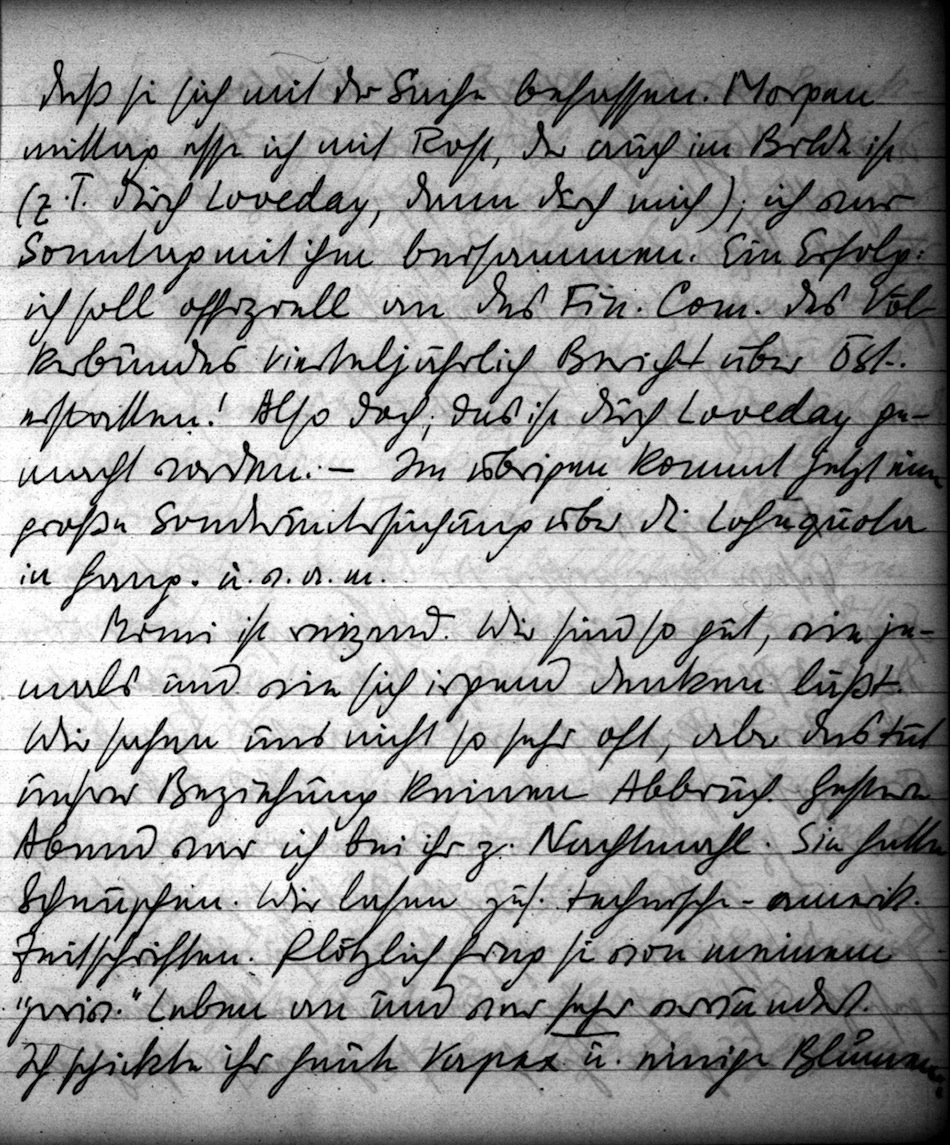 daß sie sich mit der Sache befassen. Morgen
mittag esse ich mit Rost, der auch im Bilde ist
(z.T. durch Loveday, dann durch mich); ich war
Sonntag mit ihm beisammen. Ein Erfolg:
ich soll offiziell an das Fin. Com. des Völ-
kerbundes vierteljährlich Bericht über Öst.
erstatten! Also doch; das ist durch Loveday ge-
macht worden. – Im übrigen kommt jetzt eine
große Sonderuntersuchung über die Lohnquoten
in Gang. u.s.a.m.
Mimi ist reizend. Wir sind so gut, wie je-
mals und wie sich irgend denken läßt.
Wir sehen uns nicht so sehr oft, aber das tut
unserer Beziehung keinen Abbruch. Gestern
Abend war ich bei ihr z. Nachtmahl. Sie hatte
Schnupfen. Wir lasen zus. technische-amerik.
Zeitschriften. Plötzlich fing sie von meinem
"priv." Leben an und war sehr verwundet.
Ich schickte ihr heute u. einige Blumen.